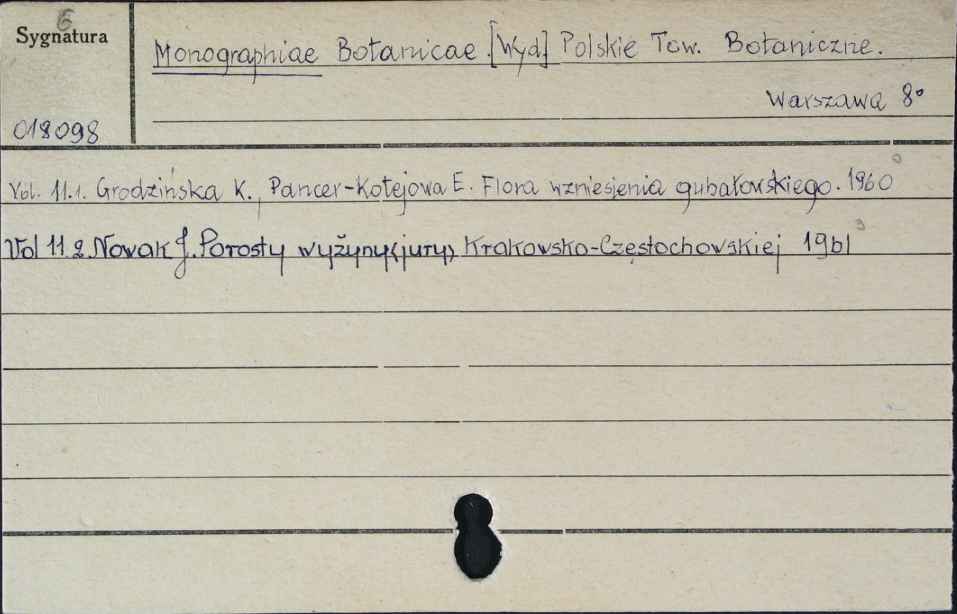 6
Sygnatura
Monographiae Botanicae. [Wyd] Polskie Tow. Botaniczne.
Warszawa 8°
018098
Vol. 11.1. Grodzińska K., Pancer-Kotejowa E. Flora wzniesienia gubałowskiego. 1960
Vol 11.2. Nowak J. Porosty wyżyny (jury) Krakowsko-Częstochowskiej 1961